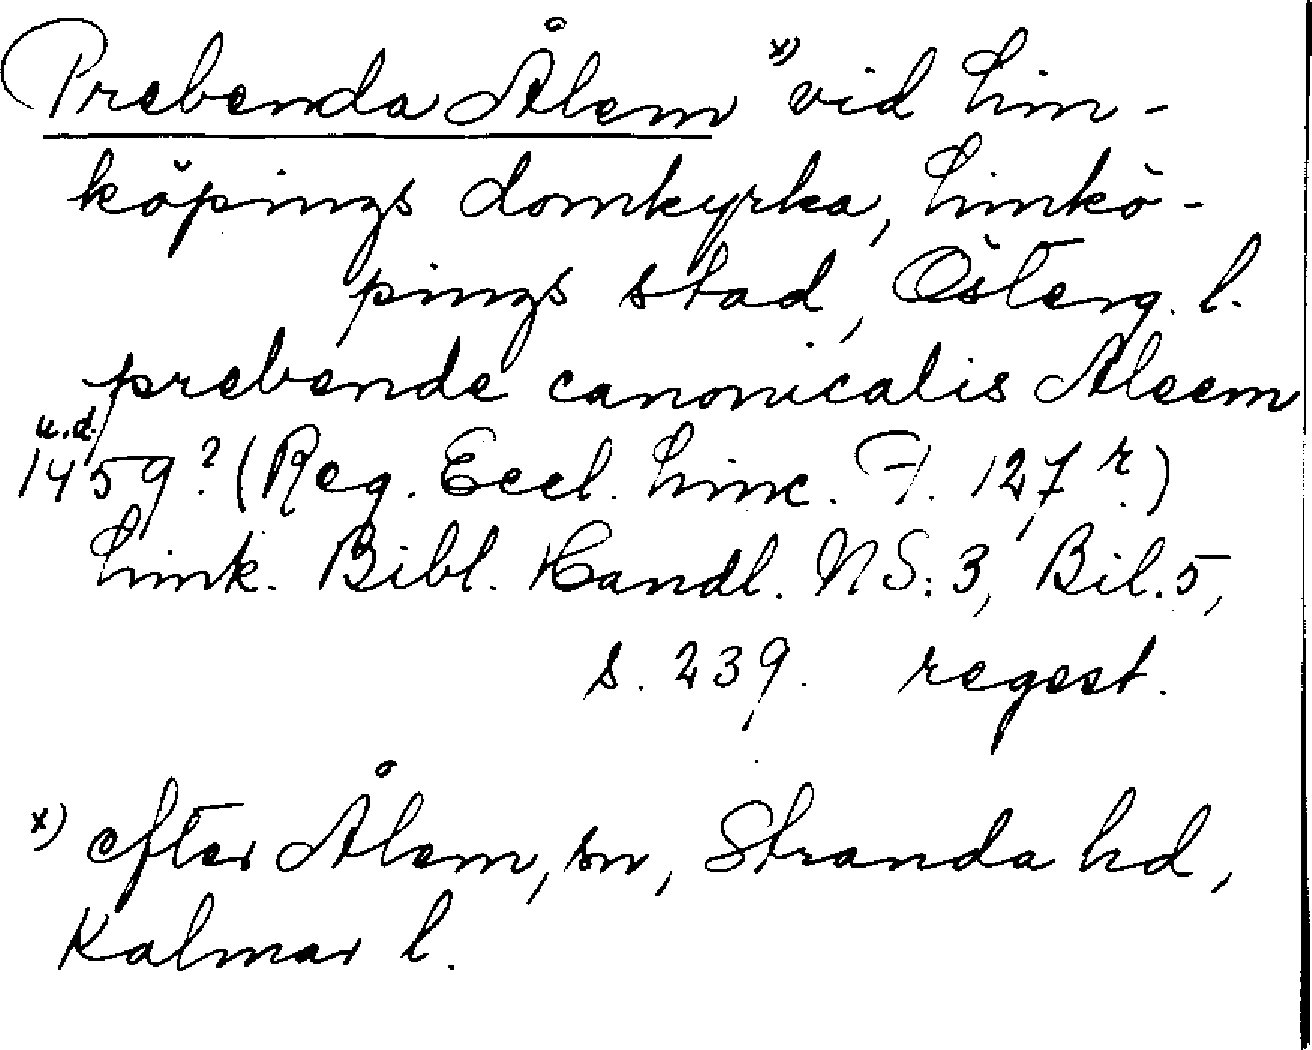 Prebenda Ålem x) vid Lin-
köpings domkyrka, Linkö-
pings stad, Österg. l.
prebende canonicalis Aleem
u.d.
1459? (Reg. Eccl. Linc. F. 127 r.)
Link. Bibl. Handl. NS: 3, Bil. 5,
s. 239. regest.
x) efter Ålem, sn, Stranda hd,
Kalmar l.